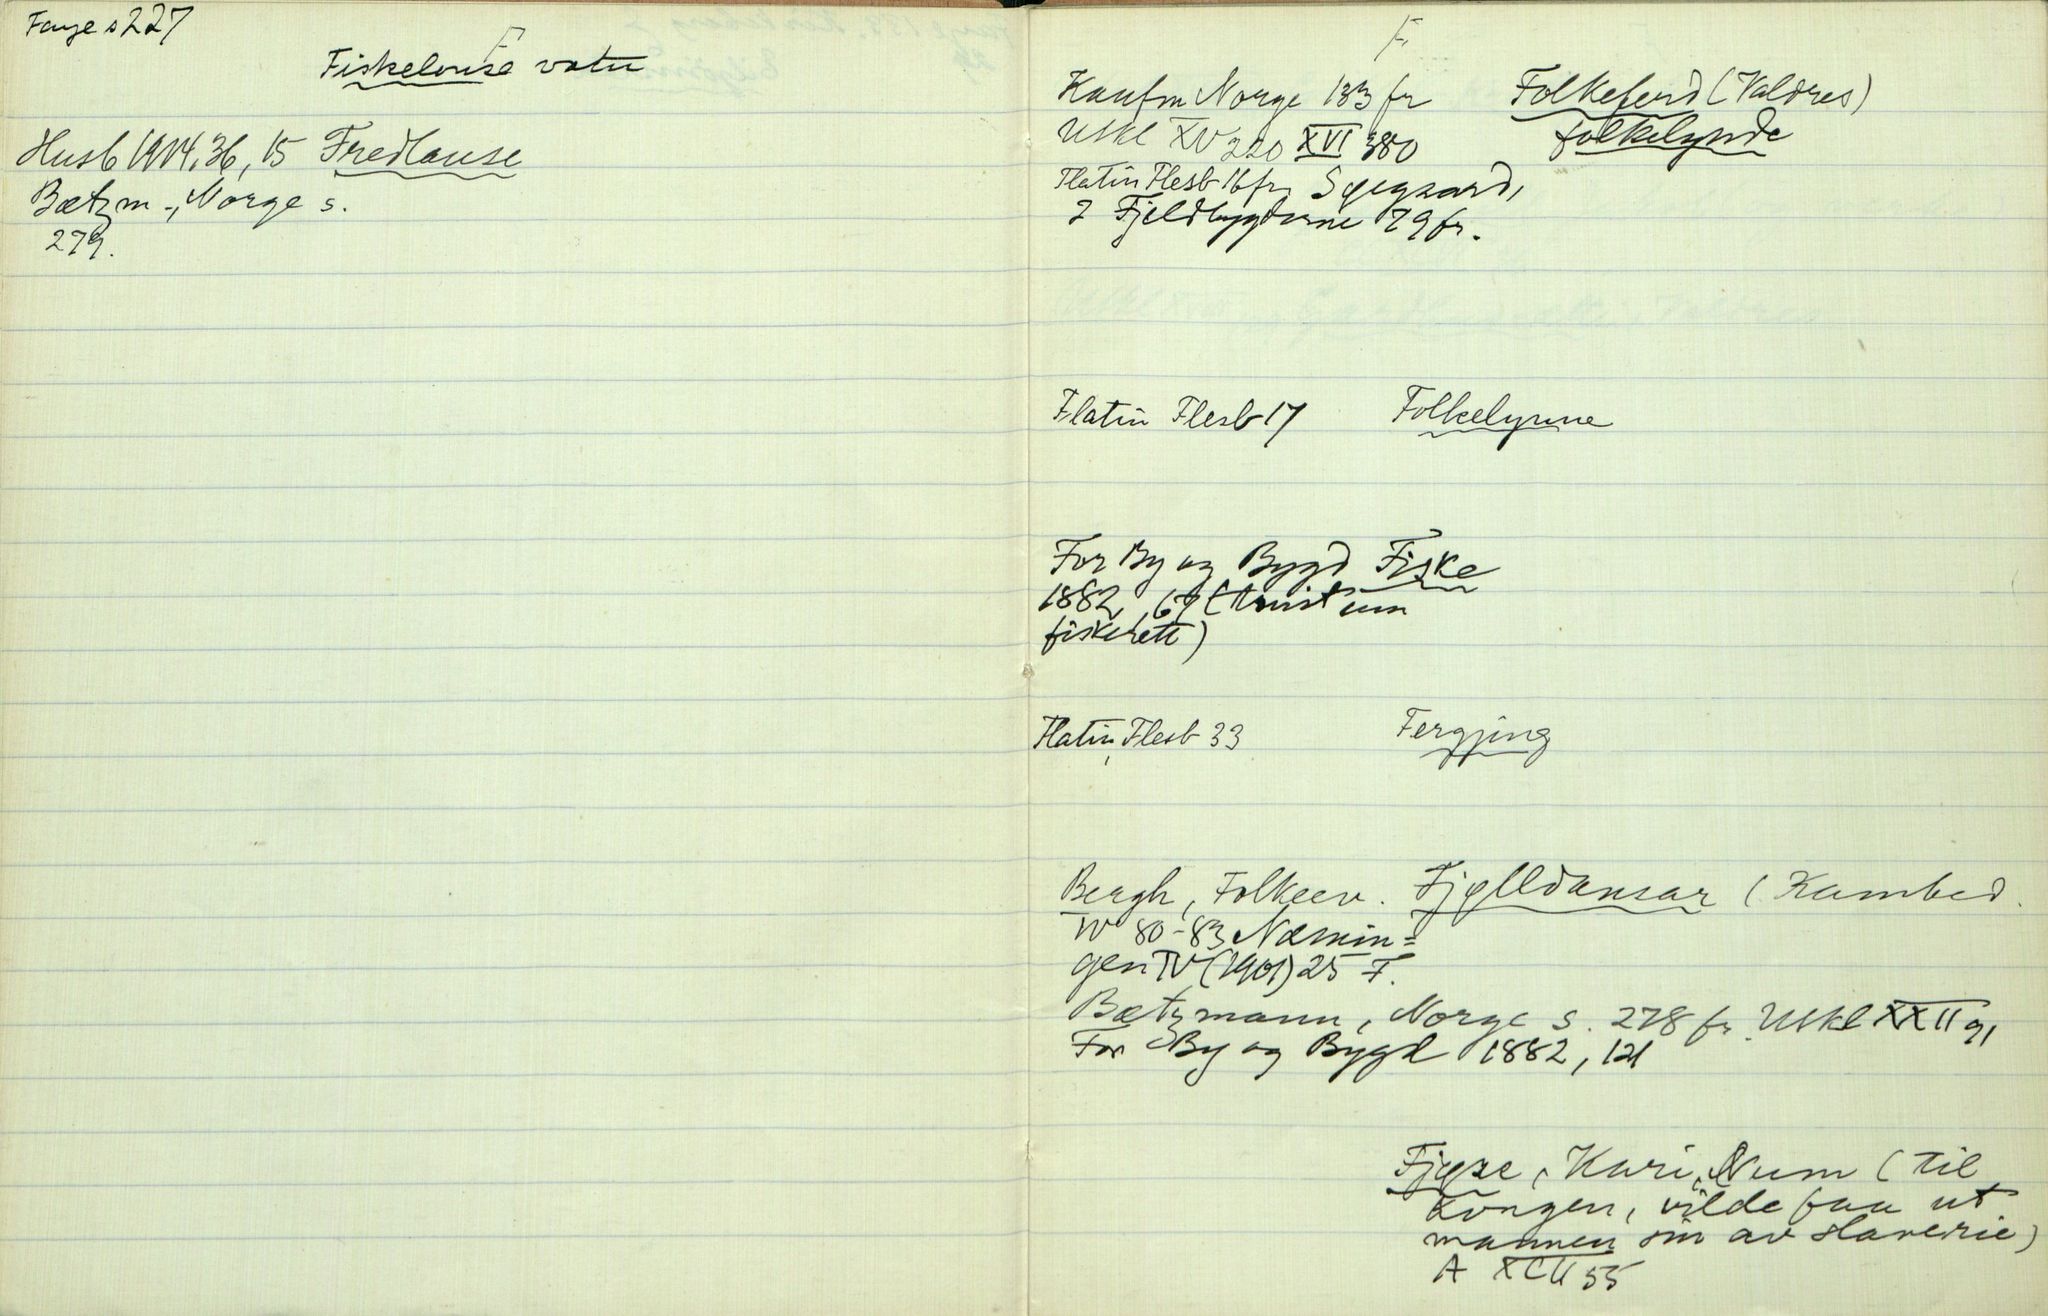 Faye s 227
F
Fiskelouse vatn
Husb 1914, 36, 15 Fredlause
Bætzm -, Norge s.
279.
F.
Kaufm Norge 133 fr Folkeferd (Valdres)
Utskl XV 220 XVI 380 folkelynde
Flatin Flesb 16 fr Sgegaard,
I Fjeldbygderne 79 fr.
Flatin Flesb 17 Folkelynne
For By og Bygd Fiske
1882, 67 (tvist um
fiskerett)
Flatin, Flesb 33 Fergjing
Bergh, Folkeev. Fjelldansar (Kambed.
IV 80-83 Næmin=
gen IV (1901) 25 F.
Bætzmann, Norge s. 278 fr. Utskl XXII 91
For By og Bygd 1882, 121
Fjøse, Kari, Num (til
kongen, vilde faa ut
mannen sin av slaverie)
A XCII 55